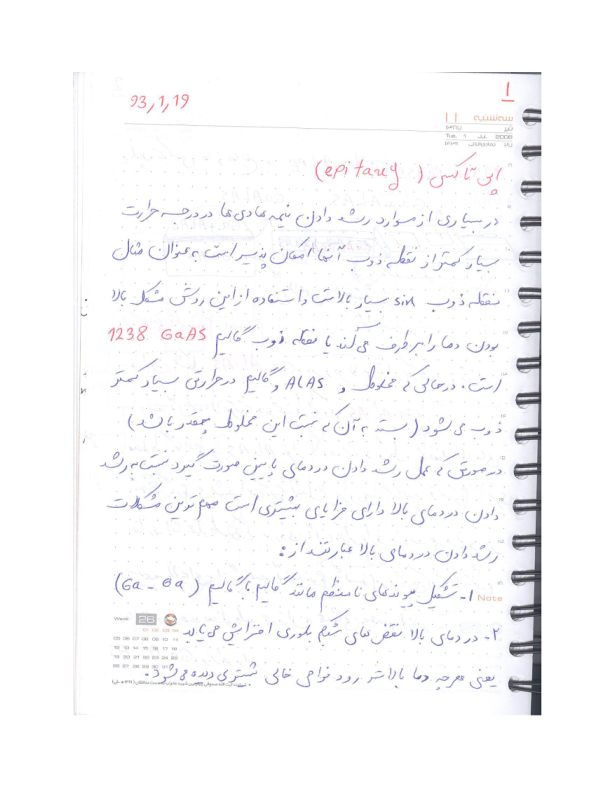 1
93,1,19
سه‌شنبه 11
تیر
Tue. 1 JUL 2008
اپی تاکسی (epitaxy)
در بسیاری از موارد رشد دادن نیمه هادی ها در درجه حرارت
بسیار کمتر از نقطه ذوب آنها امکان پذیر است به عنوان مثال
نقطه ذوب sin بسیار بالاست و استفاده از این روش مشکل بالا
بودن دما را برطرف می کند یا نقطه ذوب گالیم GaAS 1238
است. در حالی که مخلوط و ALAS و گالیم در حرارتی بسیار کمتر
ذوب می شود (بسته به آن که نسبت این مخلوط چقدر باشد)
در صورتی که عمل رشد دادن در دمای پایین صورت گیرد نسبت به رشد
دادن در دمای بالا دارای مزایای بیشتری است مهم ترین مشکلات
رشد دادن در دمای بالا عبارتند از :
Note 1- تشکیل پیوندهای نامنظم مانند گالیم با گالیم (Ga - Ga)
Week 26
2- در دمای بالا نقص های شبکه بلوری افزایش می یابد
یعنی هرچه دما بالاتر رود نواحی خالی بیشتری دیده می شود.